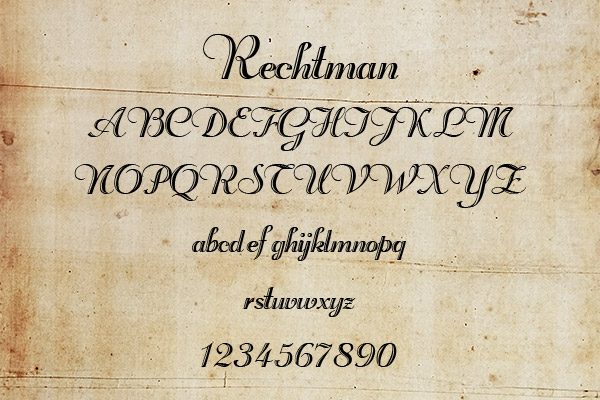 Rechtman
ABCDEFGHIJKLM
NOPQRSTUVWXYZ
abcdef ghijklmnopq
rstuvwxyz
1234567890